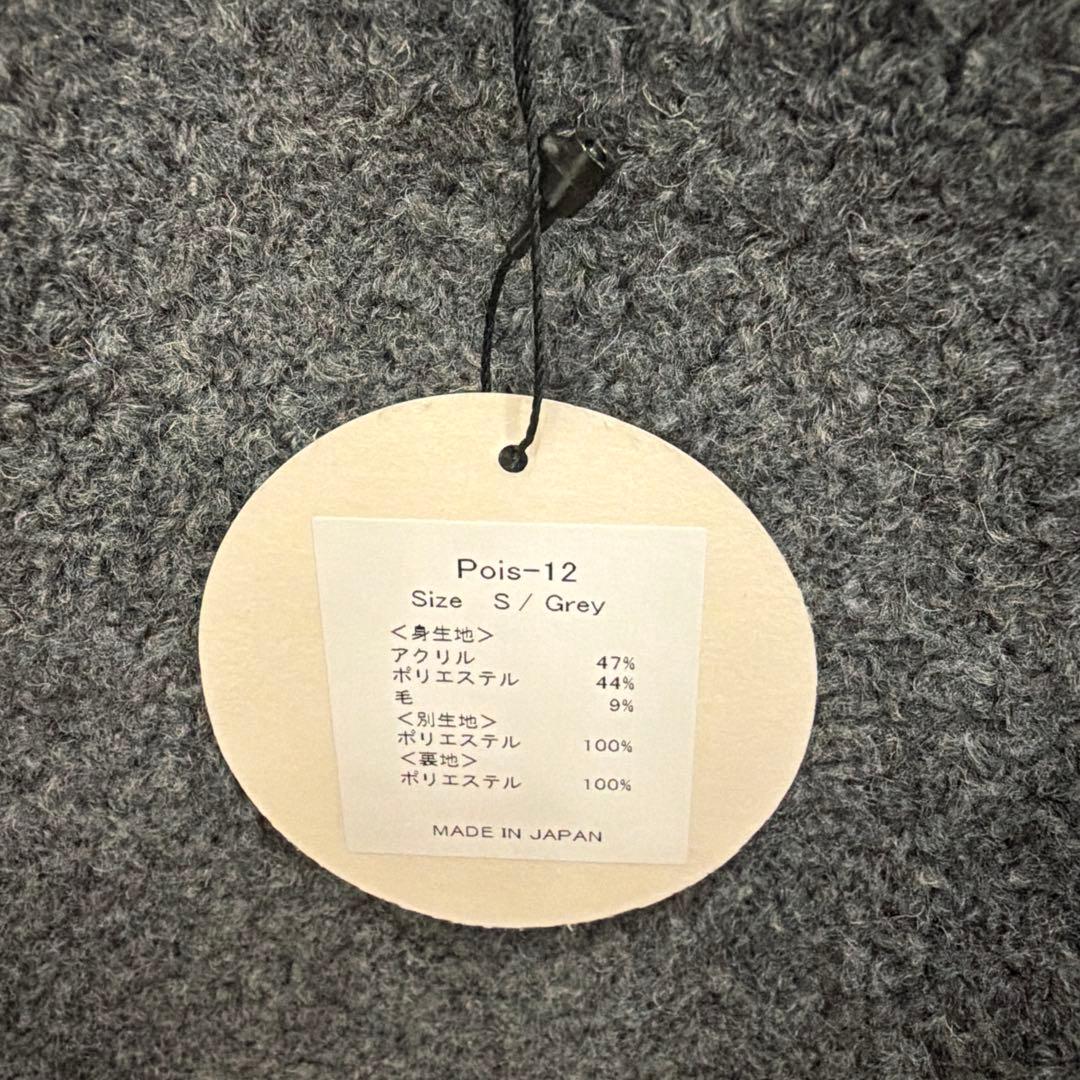 Pois-12
Size S / Grey
＜身生地＞
アクリル 47%
ポリエステル 44%
毛 9%
＜別生地＞
ポリエステル 100%
＜裏地＞
ポリエステル 100%
MADE IN JAPAN